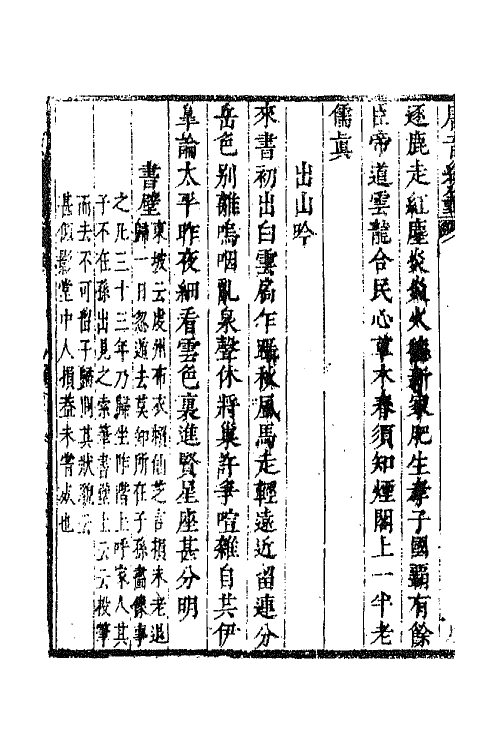 逐鹿走紅塵炎炎火德新家肥生孝子國霸有餘
臣帝道雲龍合民心草木春須知煙閣上一半老
儒真
出山吟
來書初出白雲扃乍躡秋風馬走輕遠近留連分
岳色別離嗚咽亂泉聲休將巢許爭喧雜自共伊
皐論太平昨夜細看雲色裏進賢星座甚分明
書壁
東坡云虔州布衣賴仙芝言損未老退
歸一月忽遁去莫知所在子孫畵像事
之凡三十三年乃歸坐阼階上呼家人其
子不在孫出見之索筆書壁上云云投筆
而去不可留子歸問其狀貌云
甚似影堂中人損蓋未嘗死也